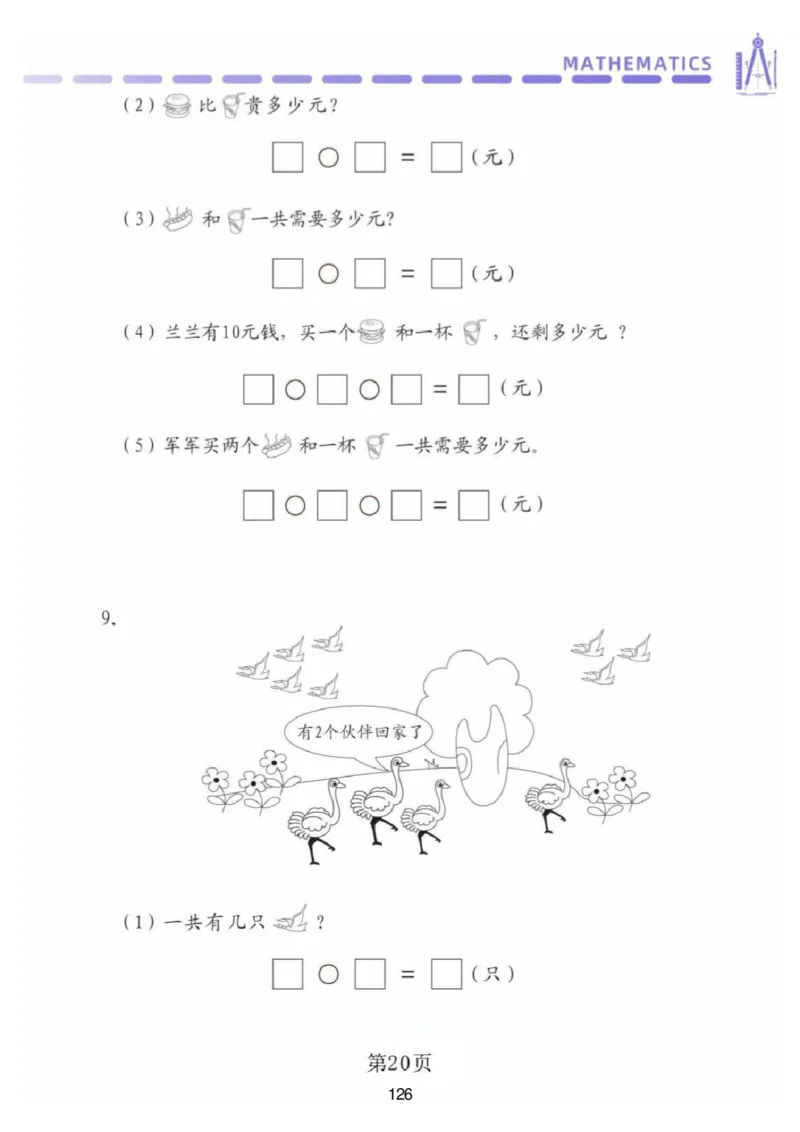 MATHEMATICS
（2） 比 贵多少元？
= （元）
（3） 和 一共需要多少元？
= （元）
（4）兰兰有10元钱，买一个 和一杯 ，还剩多少元 ？
= （元）
（5）军军买两个 和一杯 一共需要多少元。
= （元）
9.
有2个伙伴回家了
（1）一共有几只 ？
= （只）
第20页
126